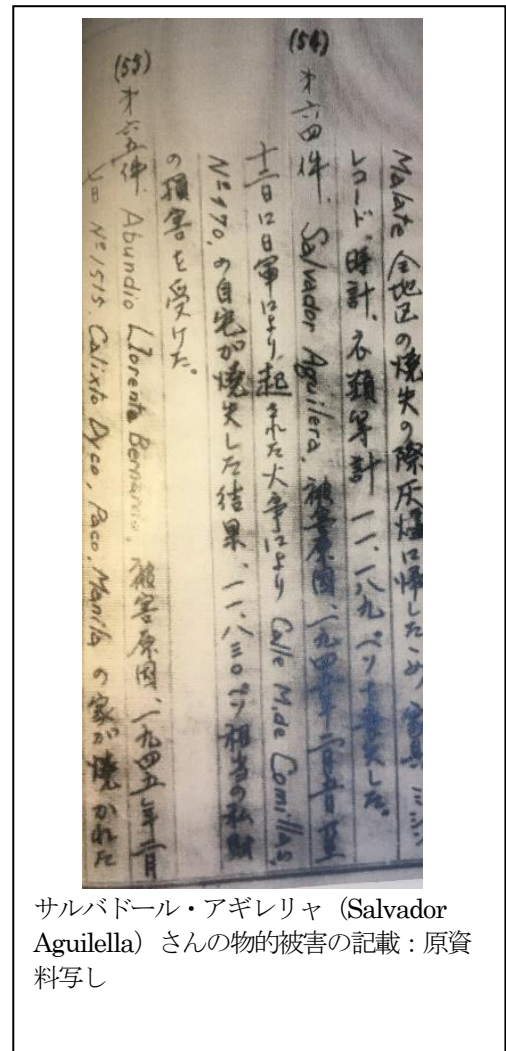 Malate 全地区の焼失の際灰燼に帰したため、家具、ミシン
レコード、時計、衣類等計一一、一八九ペソを喪失した。
(54) 才六四件. Salvador Aguilera, 被害原因、一九四五年二月五日
十二日に日軍により起された火事により Calle M. de Comillas,
の自宅が焼失した結果、一一、八三〇ペソ相当の私財
の損害を受けた。
(55) 才六五件. Abundio Llorente 被害原因、一九四五年二月
七日 Nº 1515 Calixto Dyco, Paco, Manila の家が焼かれた
サルバドール・アギレリャ（Salvador
Aguilella）さんの物的被害の記載：原資
料写し